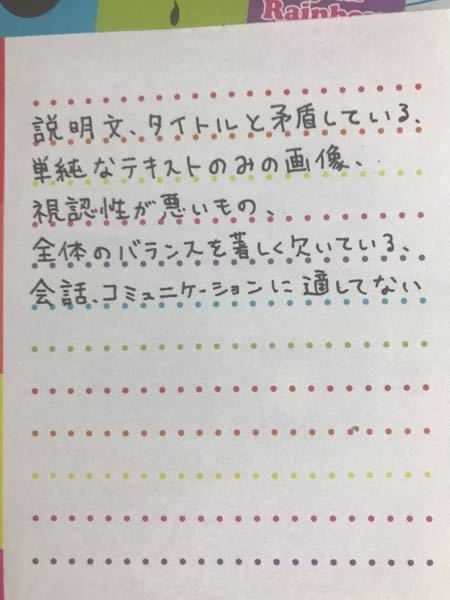 Rainbow
説明文、タイトルと矛盾している、
単純なテキストのみの画像、
視認性が悪いもの、
全体のバランスを著しく欠いている、
会話、コミュニケーションに適してない